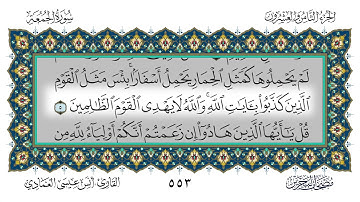 الجزء الثامن والعشرون
سورة الجمعة
لَمْ يَحْمِلُوهَا كَمَثَلِ ٱلْحِمَارِ يَحْمِلُ أَسْفَارًۢا ۚ بِئْسَ مَثَلُ ٱلْقَوْمِ
ٱلَّذِينَ كَذَّبُوا۟ بِـَٔايَـٰتِ ٱللَّهِ ۚ وَٱللَّهُ لَا يَهْدِى ٱلْقَوْمَ ٱلظَّـٰلِمِينَ ٥
قُلْ يَـٰٓأَيُّهَا ٱلَّذِينَ هَادُوٓا۟ إِن زَعَمْتُمْ أَنَّكُمْ أَوْلِيَآءُ لِلَّهِ مِن
٥٥٣
القارئ أنس عيسى العمادي